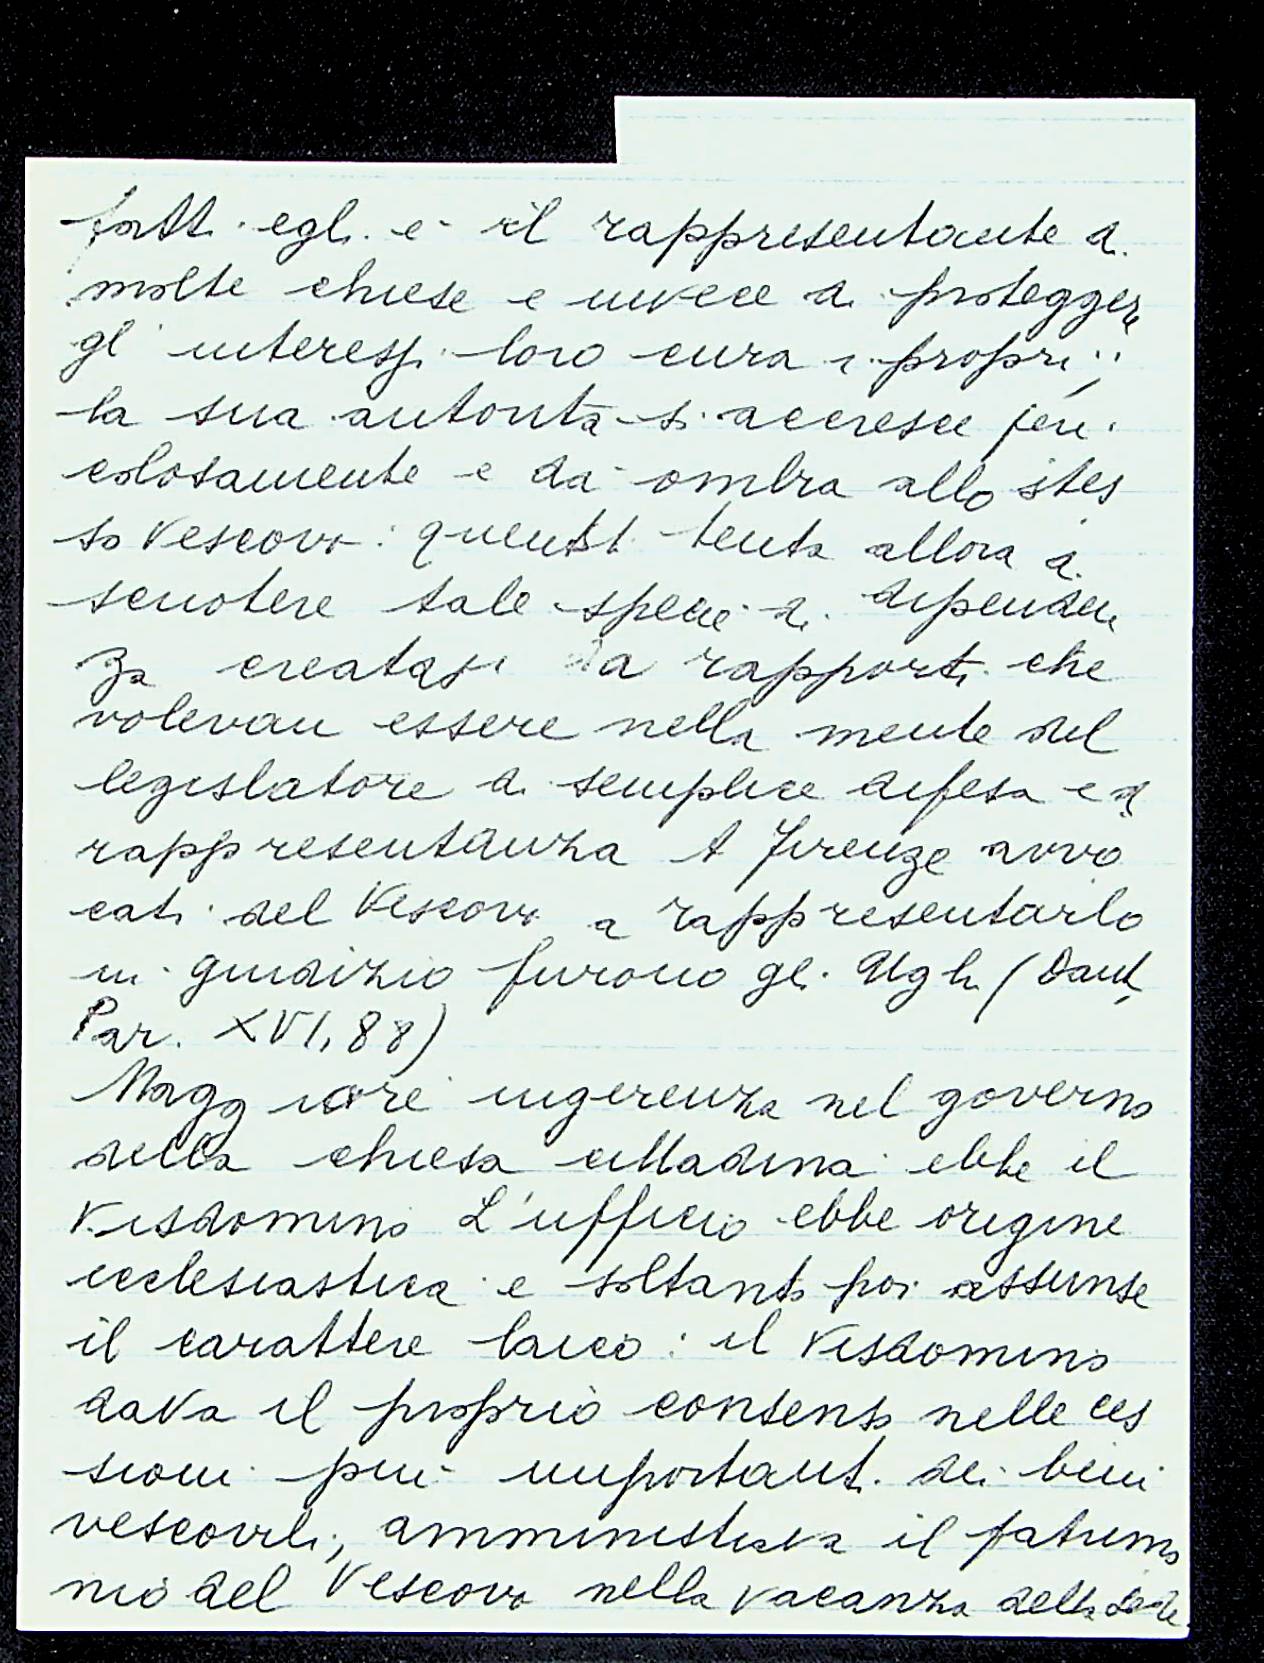 fatti egli è il rappresentante di
molte chiese e invece di proteggere
gl'interessi loro cura i propri;
la sua autorità si accresce peri
colosamente e dà ombra allo stes
so Vescovo: questi tenta allora di
scuotere tale specie di dipenden
za creatasi da rapporti che
volevan essere nella mente del
legislatore di semplice difesa e di
rappresentanza A Firenze avvo
cati del Vescovo a rappresentarlo
in giudizio furono gli Ughi (Dant,
Par. XVI, 88)
Maggiore ingerenza nel governo
della chiesa cittadina ebbe il
Visdomino L'ufficio ebbe origine
ecclesiastica e soltanto poi assunse
il carattere laico: il Visdomino
dava il proprio consenso nelle ces
sioni più importanti dei beni
vescovili, amministrava il patrimo
nio del Vescovo nella vacanza della sede